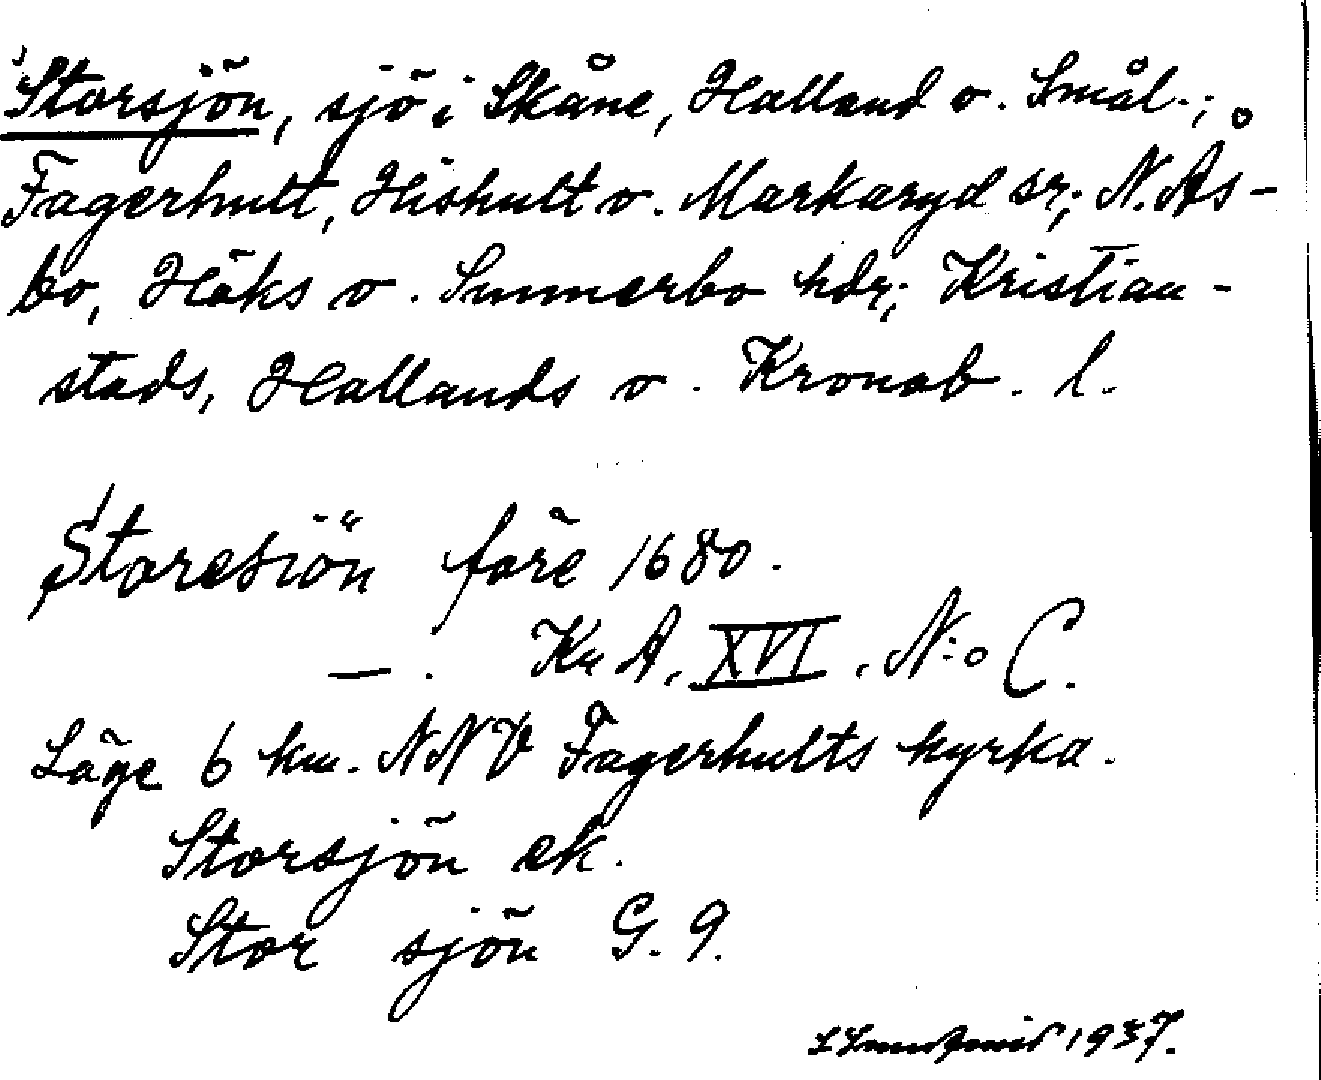 Storsjön, sjö i Skåne, Halland o. Smål.;
Fagerhult, Hishult o. Markaryd sr; N. Ås-
bo, Höks o. Sunnerbo hdr; Kristian-
stads, Hallands o. Kronob. l.
Storesiön före 1680.
—. Kr A, XVI. N:o C.
Läge 6 km. NNV Fagerhults kyrka.
Storsjön ek.
Stor sjön G. 9.
1937.